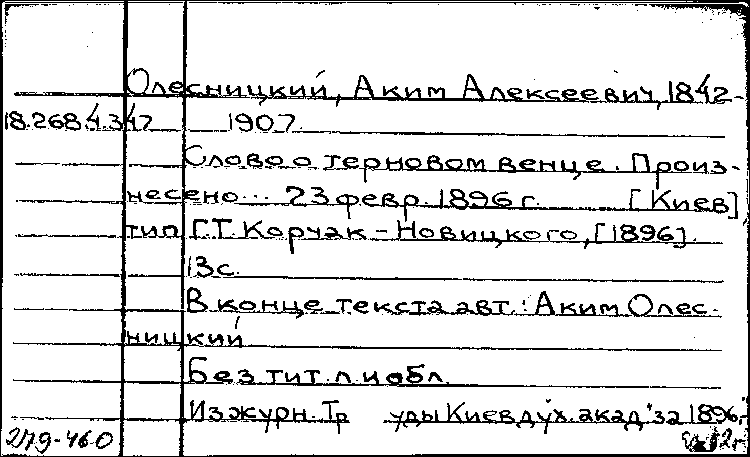 Олесницкий, Аким Алексеевич, 1842-
18.268.4.347 1907.
Слово о терновом венце. Произ-
несено... 23 февр. 1896 г. [Киев],
тип. Г.Т. Корчак-Новицкого, [1896].
13 с.
В конце текста авт.: Аким Олес-
ницкий
Без тит. л. и обл.
Из журн. "Труды Киев. дух. акад." за 1896,
2/19-460